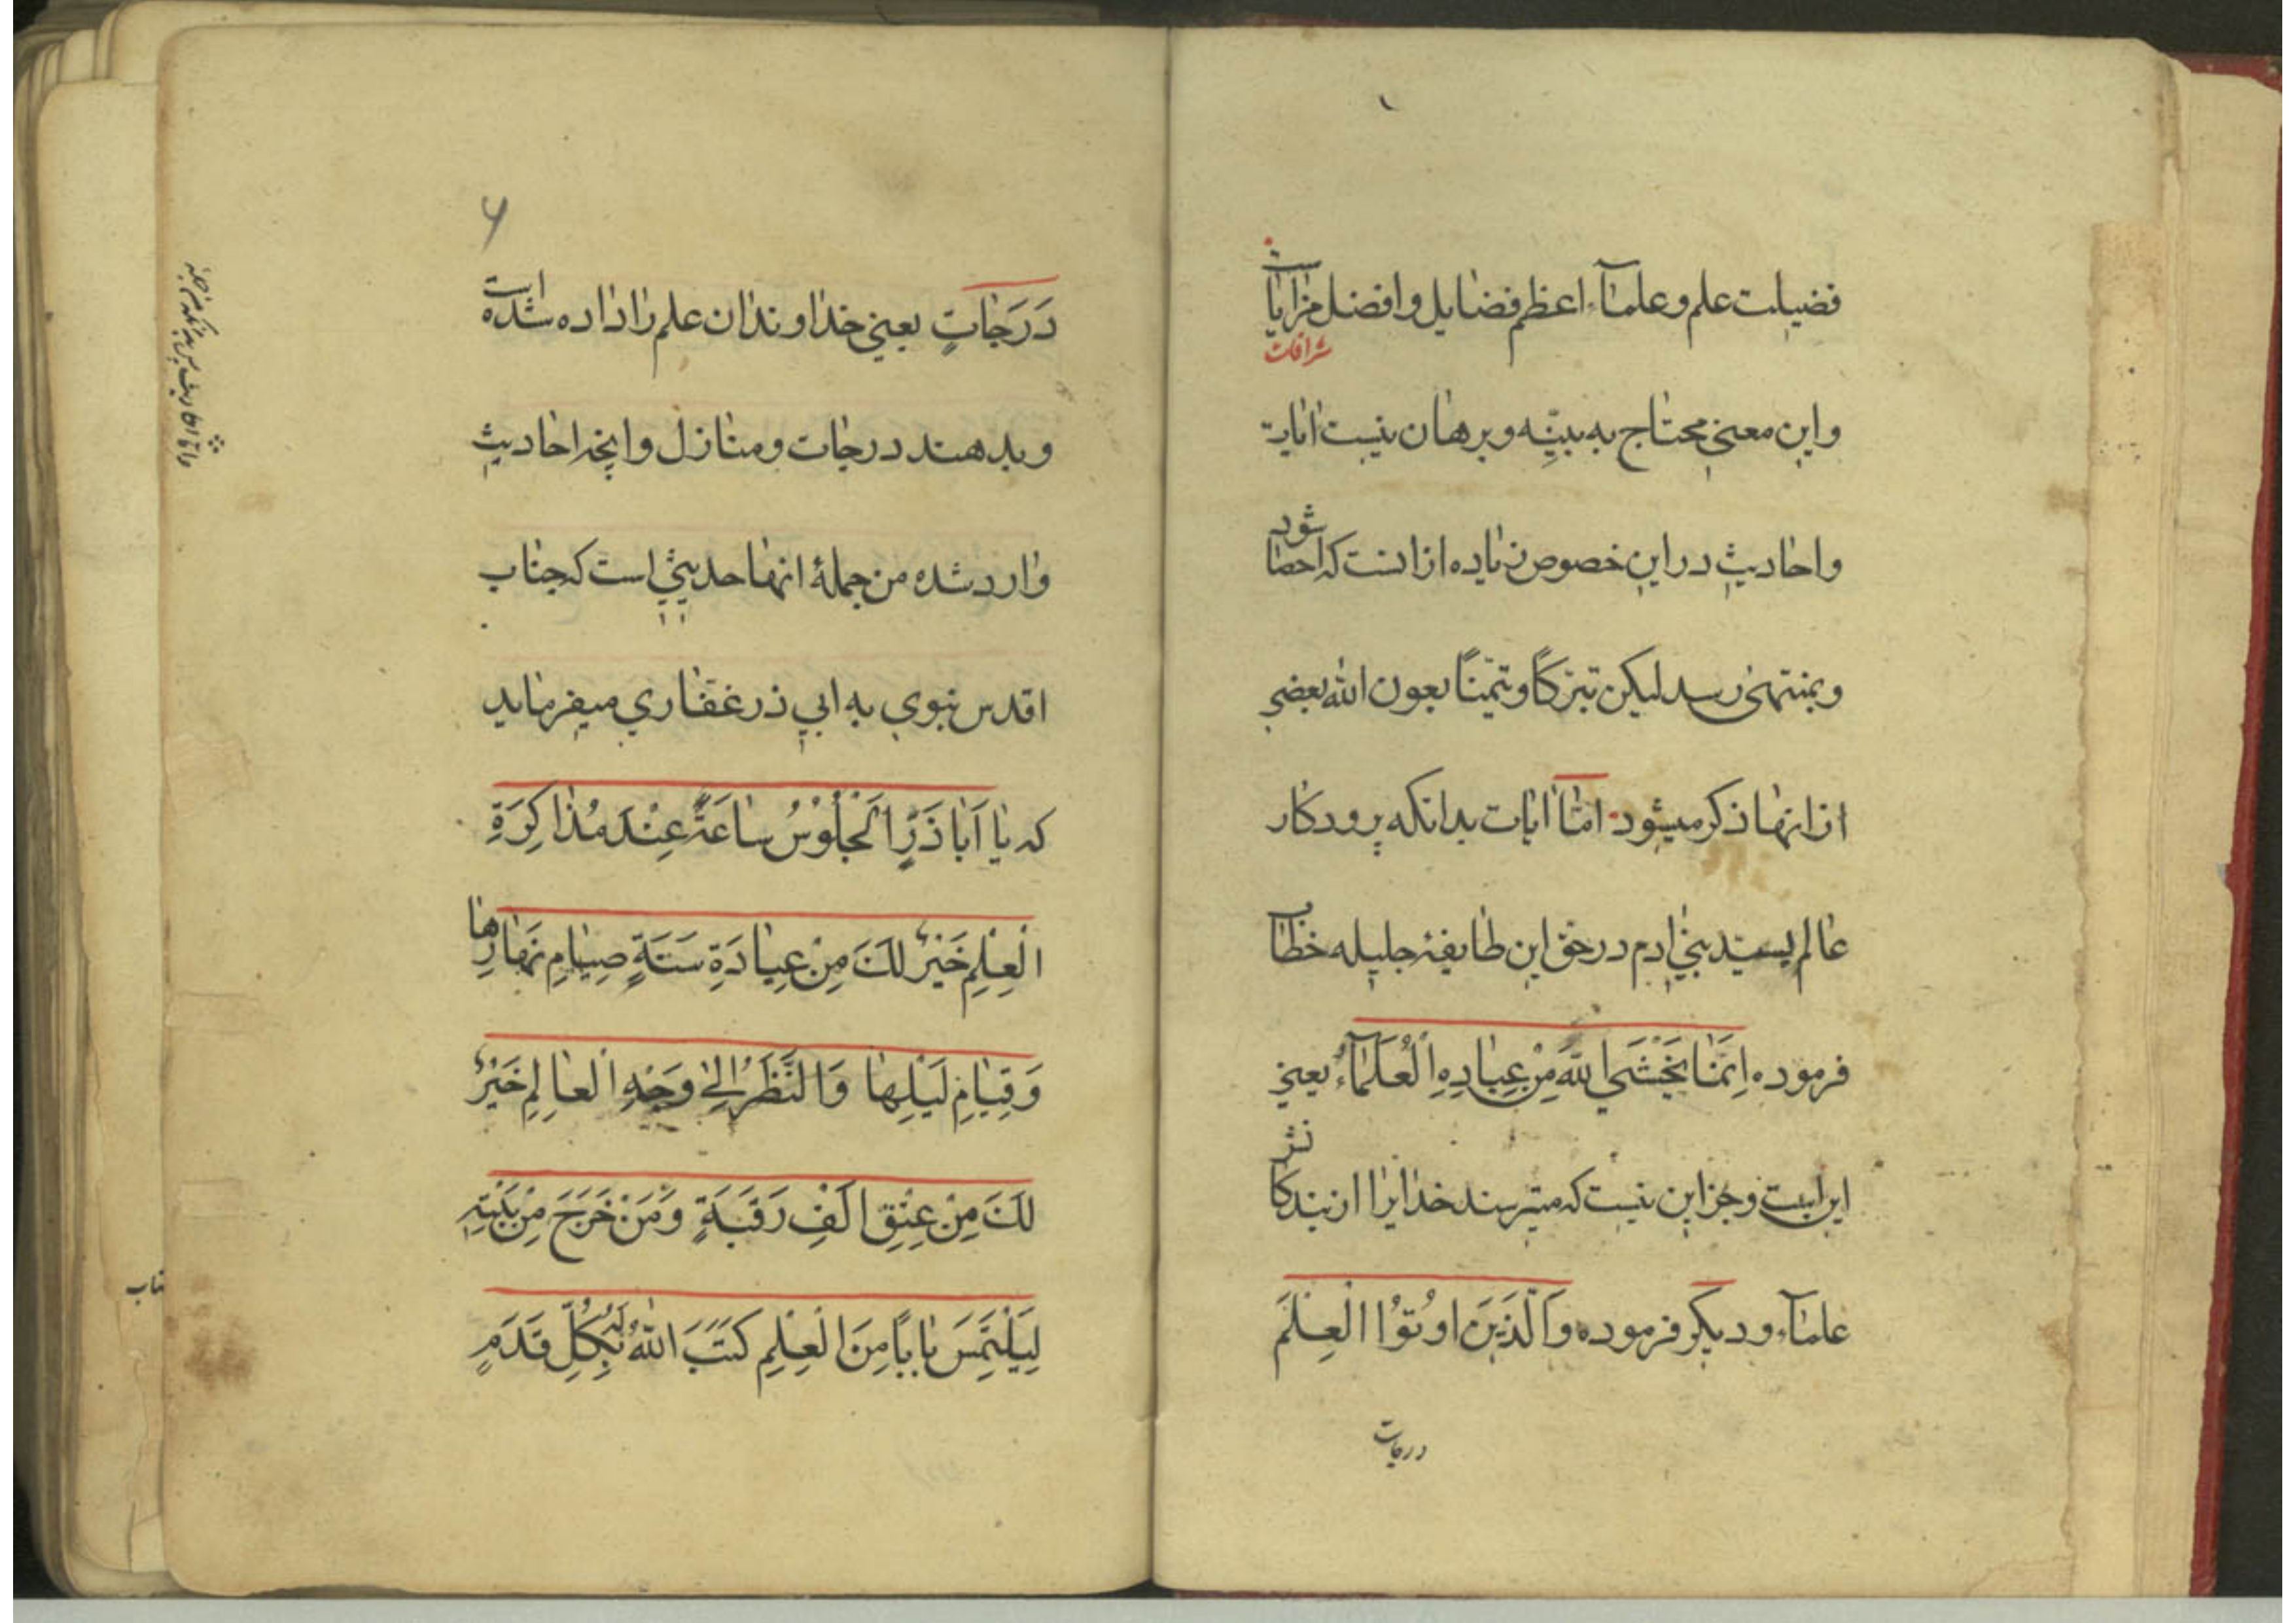 فضیلت علم و علمآء اعظم فضایل و افضل مزایاست
شرافات
و این معنی محتاج به بیّنه و برهان نیست ایات
و احادیث در این خصوص زیاده از انست که احصا شود
و بمنتهی رسد لیکن تبرّکاً و تیمّناً بعون الله بعضی
از انها ذکر میشود امّا ایات بدانکه پرودکار
عالم بسیّد بنی ادم در حق این طایفهٔ جلیله خطاب
فرموده اِنَّمٰا یَخْشَی اللّهَ مِنْ عِبٰادِهِ الْعُلَمٰآءُ یعنی
این است و جز این نیست که میترسند خدایرا از بندکانش
علمآء و دیکر فرموده وَالَّذَینَ اوُتوُا الْعِلْمَ
درجات
۶
دَرَجٰاتٍ یعنی خداوندان علم را داده شده است
و بدهند درجات و منازل و انچه احادیث
وارد شده من جملهٔ انها حدیثی است که جناب
اقدس نبوی به ابی ذر غفاری میفرماید
که یٰا اَبٰا ذَرٍّ اَلْجُلُوْسُ سٰاعَةً عِنْدَ مُذٰاکِرَةِ
الْعِلْمِ خَیْرٌ لَکَ مِنْ عِبٰادَةِ سَنَةٍ صِیٰامِ نَهٰارِهٰا
وَ قِیٰامِ لَیْلِهٰا وَالنَّظَرُ اِلیٰ وَجْهِ الْعٰالِمِ خَیْرٌ
لَکَ مِنْ عِتْقِ اَلْفِ رَقَبَةٍ وَ مَنْ خَرَجَ مِنْ بَیْتِهِ
لِیَلْتَمِسَ بٰابًا مِنَ الْعِلْمِ کَتَبَ اللّٰهُ لَهُ بِکُلِّ قَدَمٍ